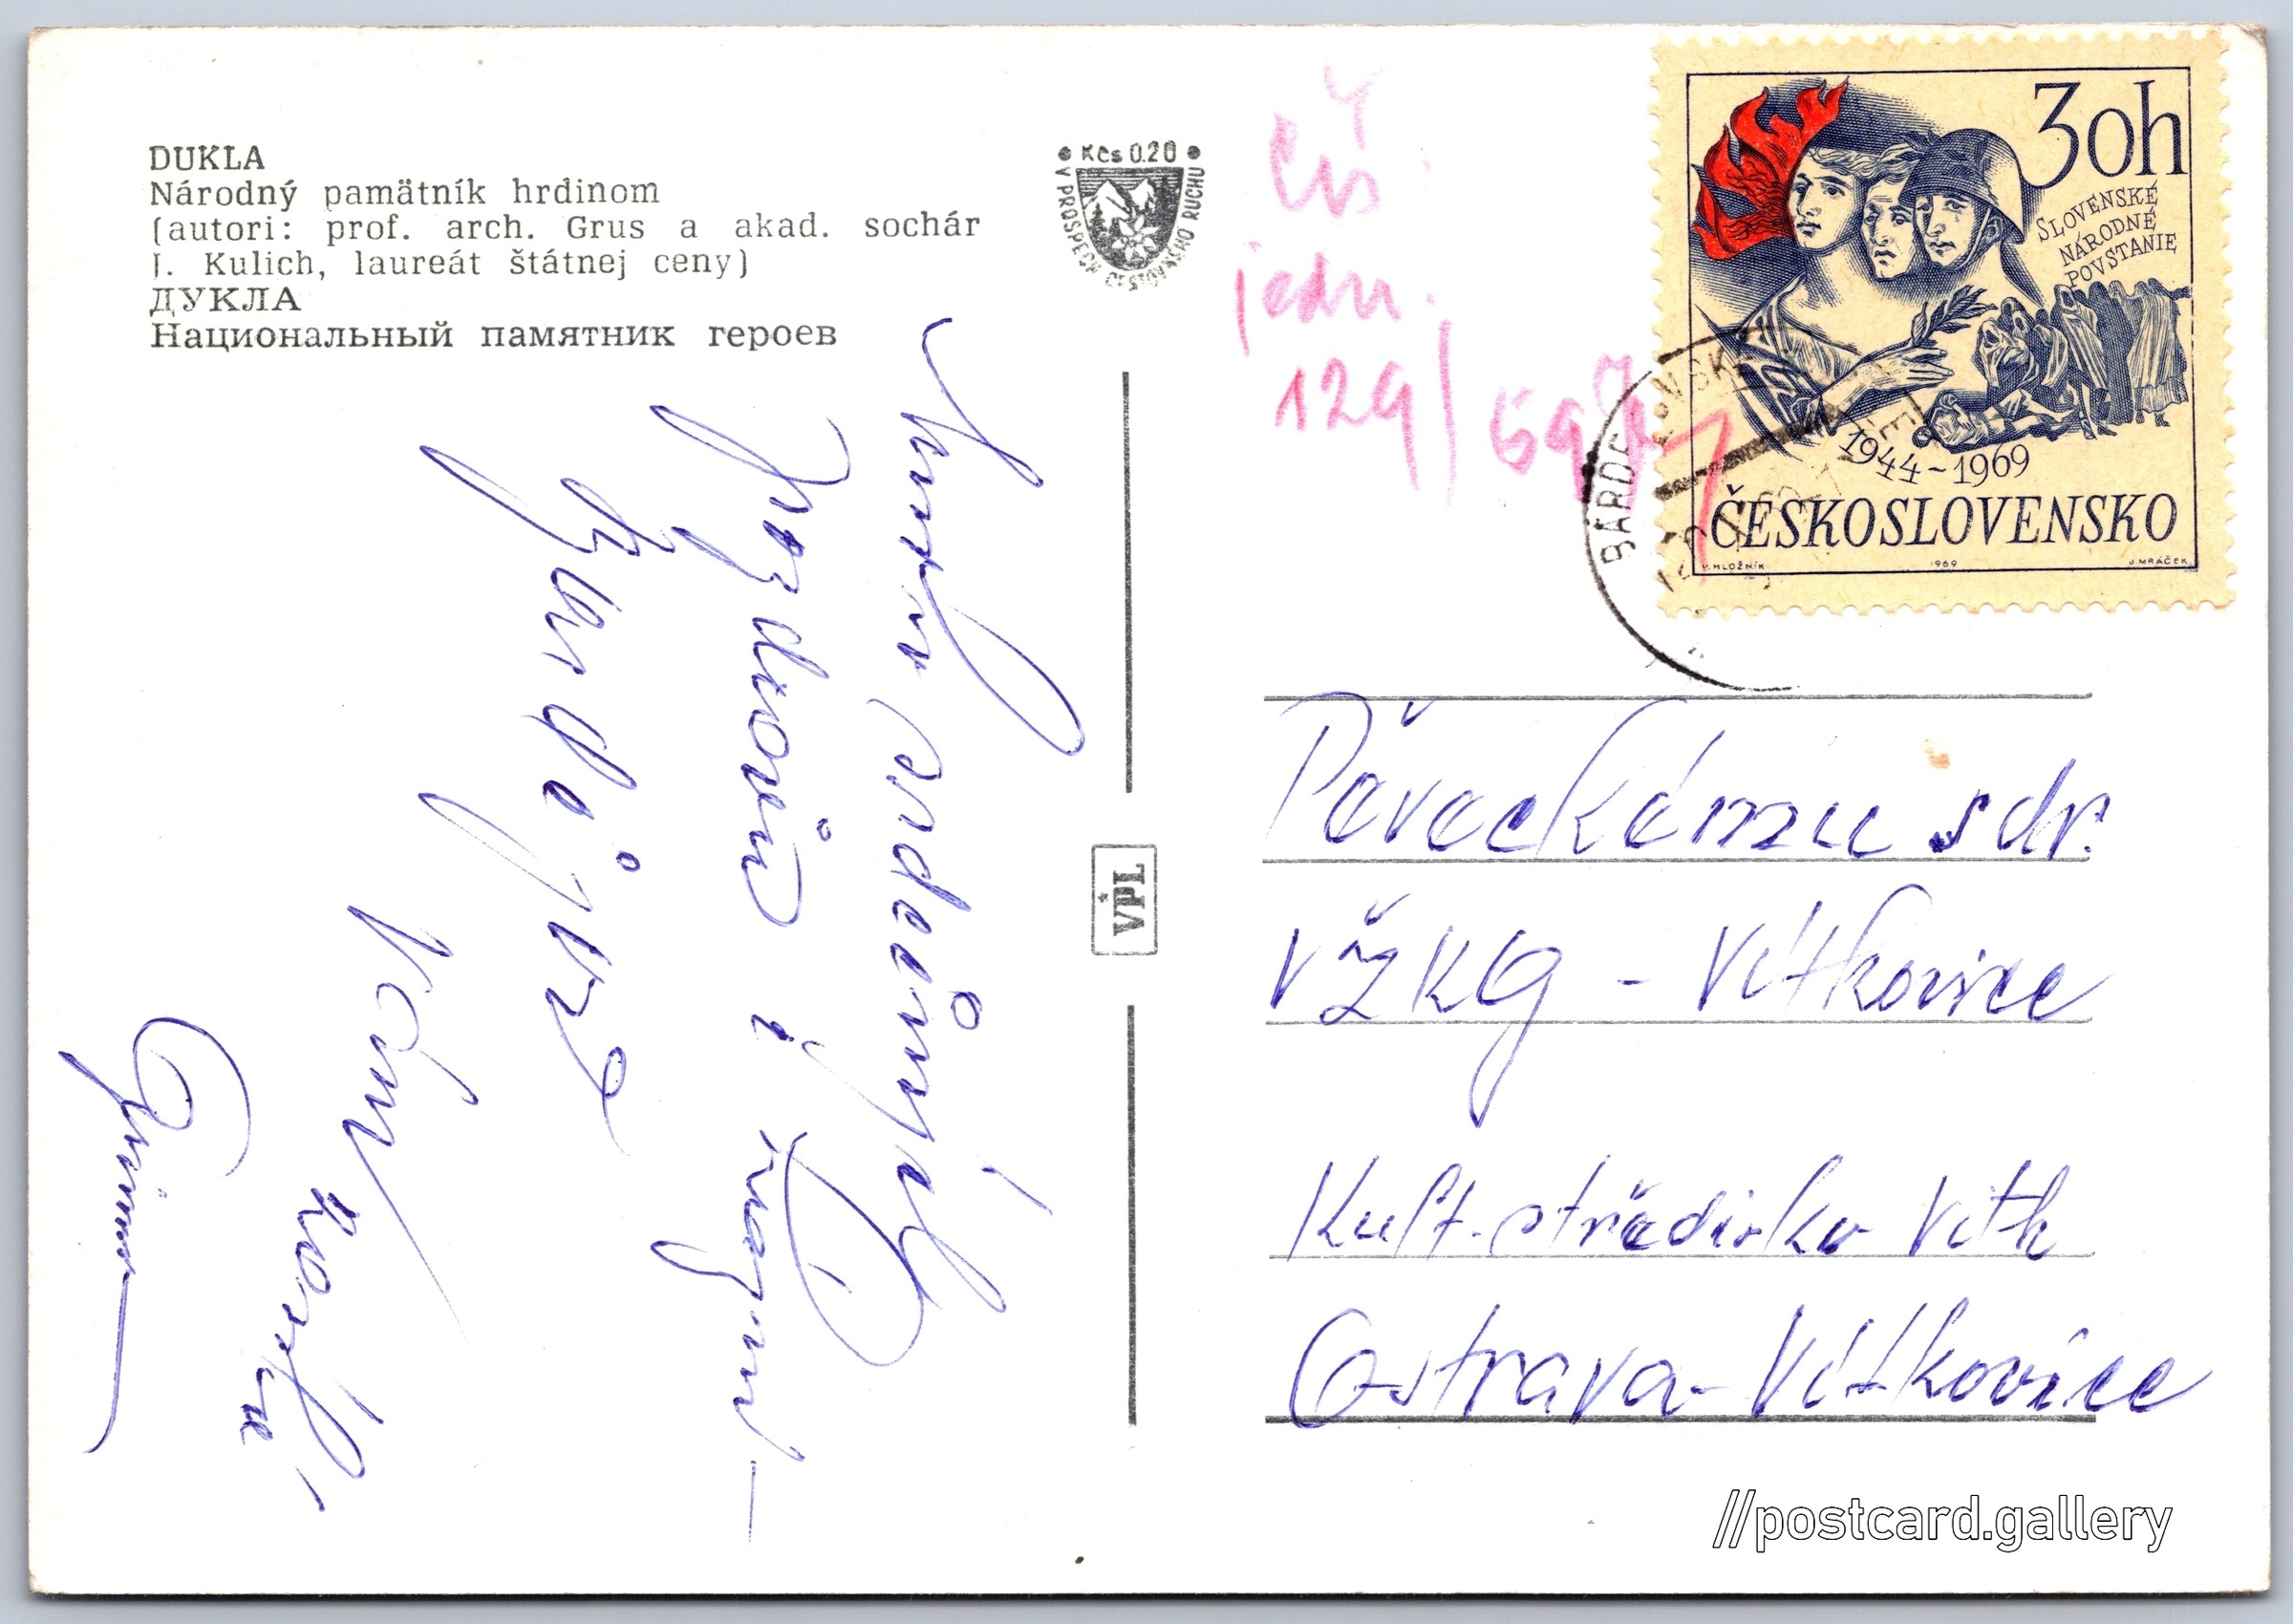 DUKLA
Národný pamätník hrdinom
(autori: prof. arch. Grus a akad. sochár
J. Kulich, laureát štátnej ceny)
ДУКЛА
Национальный памятник героев
• Kčs 0.20 •
V PROSPECH CESTOVNÉHO RUCHU
čís
jedn.
129/69
30h
SLOVENSKÉ
NÁRODNÉ
POVSTANIE
1944-1969
ČESKOSLOVENSKO
V. HLOŽNÍK 1969 J. MRÁČEK
BARDEJOVSKÉ
VPL
srdečných
pozdravů z
Bardějova
Vám
Pěveckému sdr.
VŽKG - Vítkovice
Kult. středisko Vítk
Ostrava-Vítkovice
//postcard.gallery